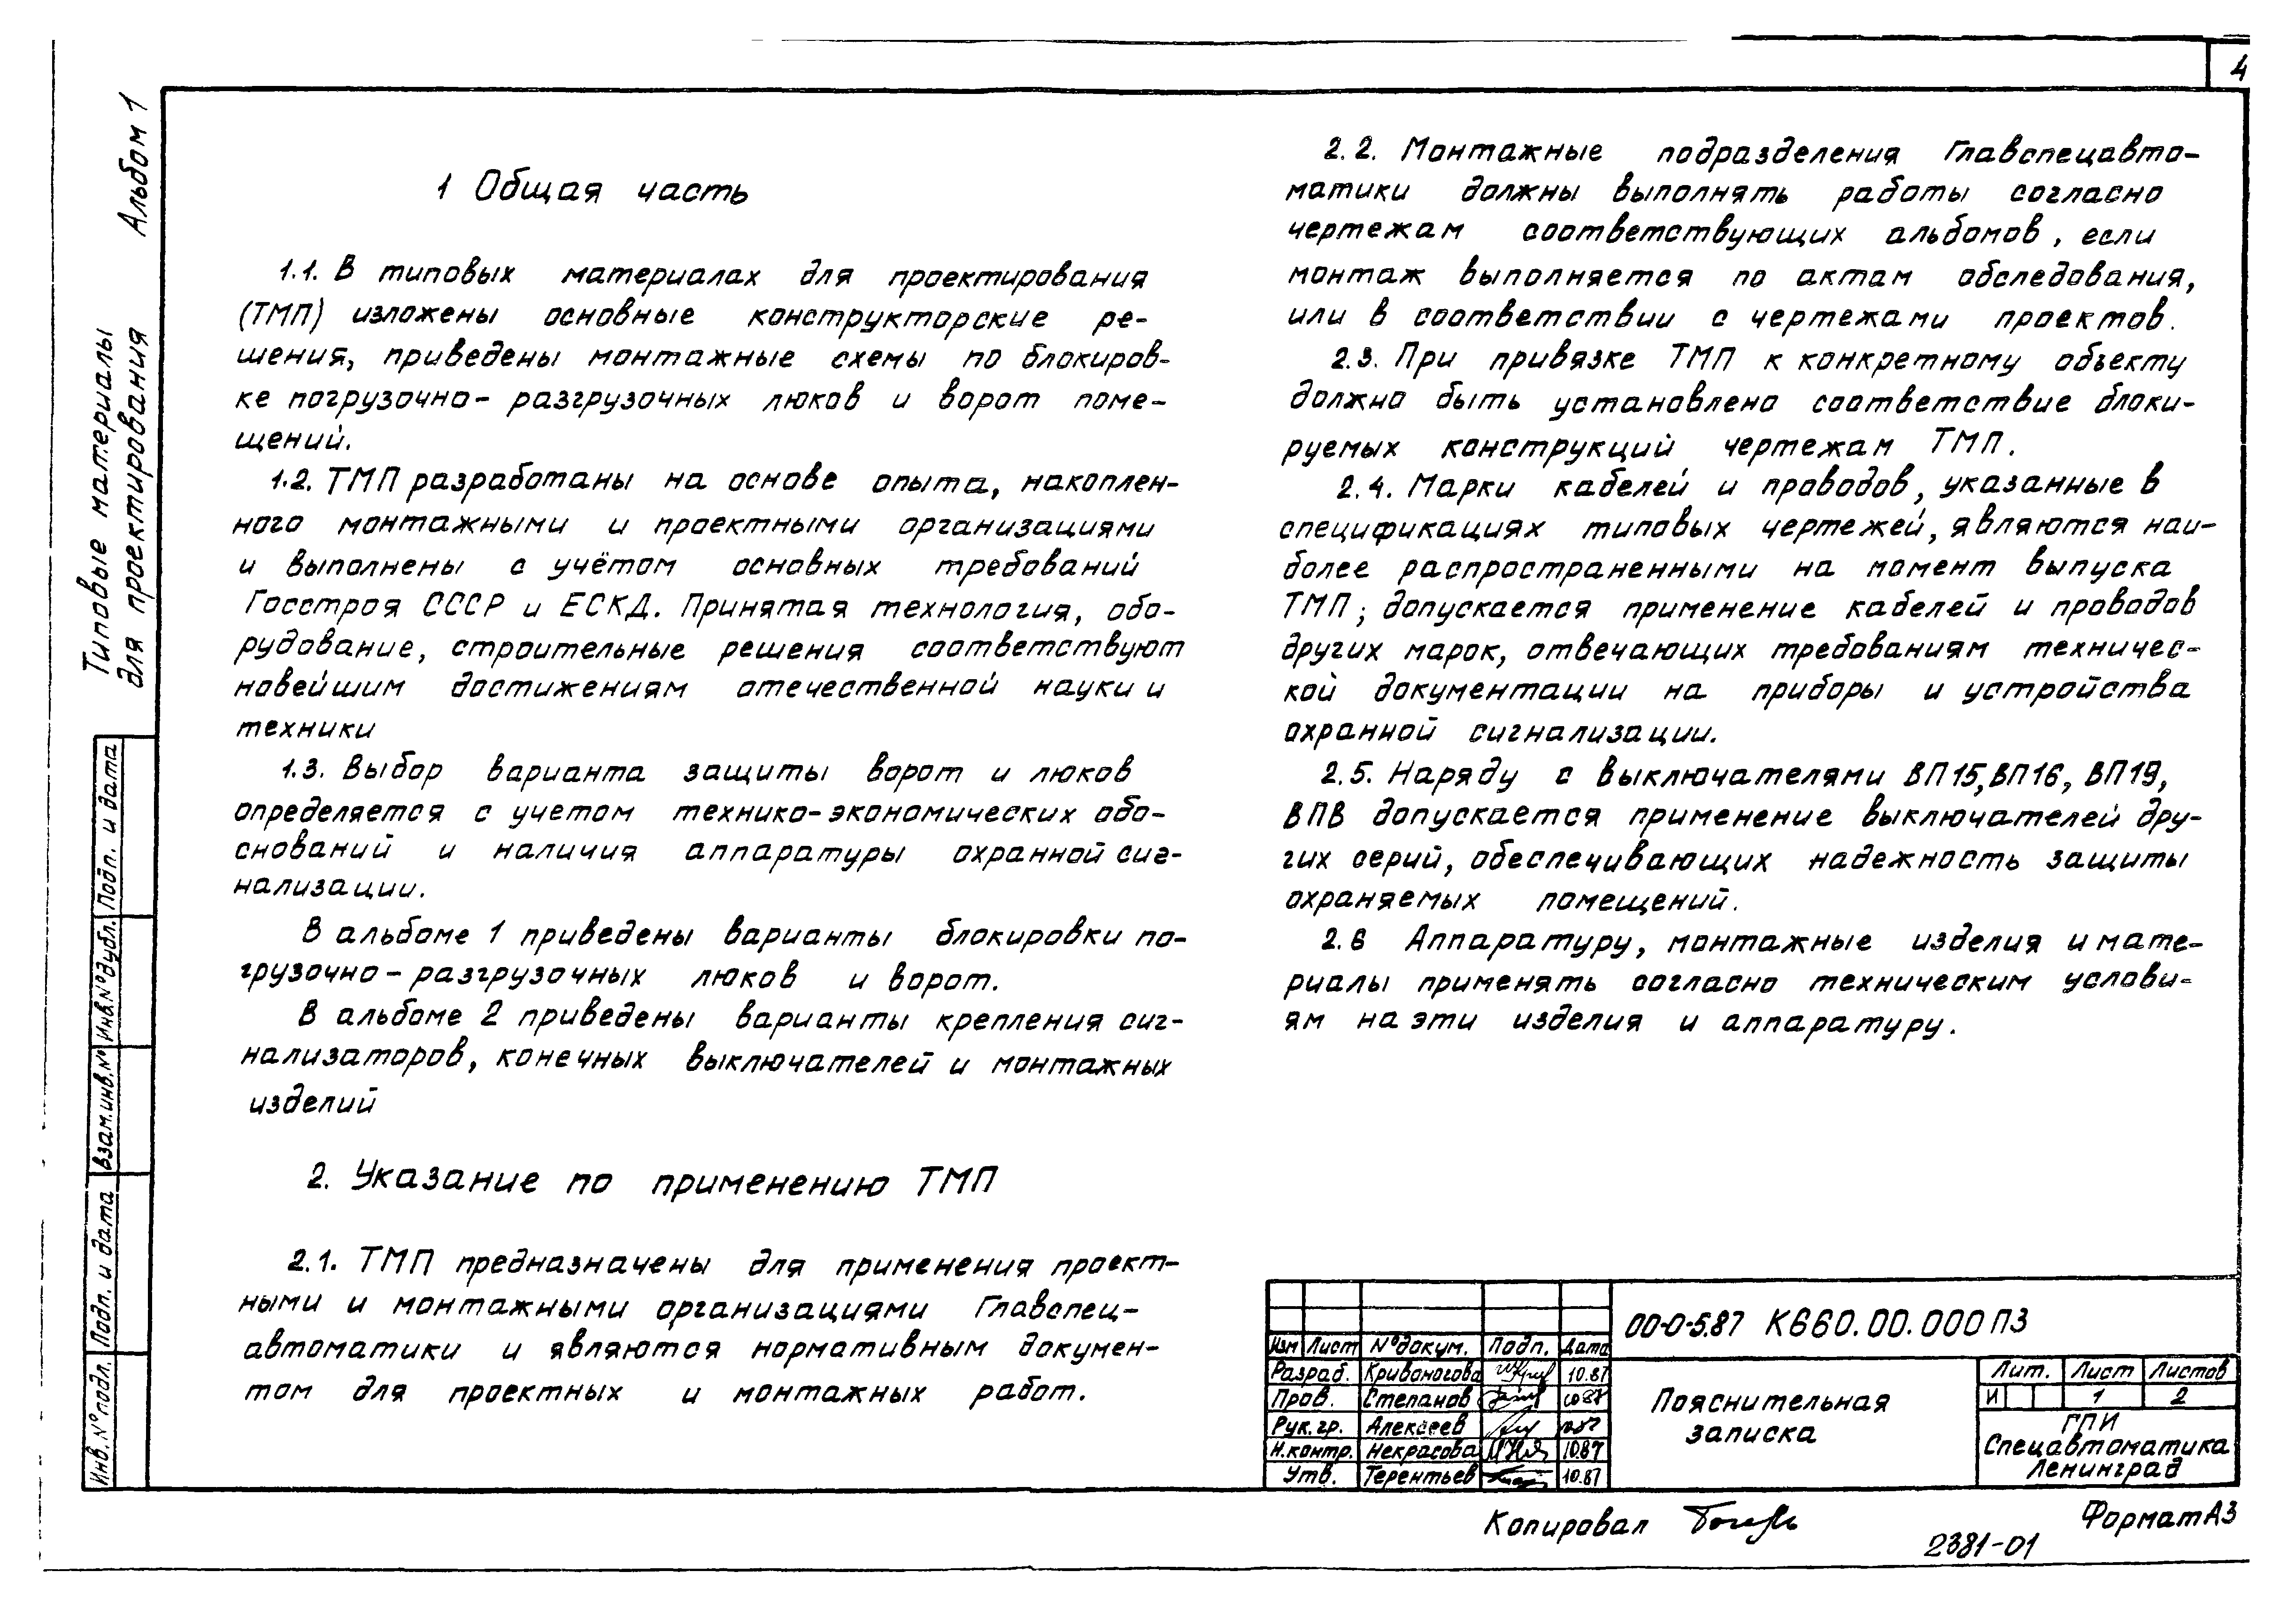 4
Типовые материалы
для проектирования
Альбом 1
1 Общая часть
1.1. В типовых материалах для проектирования
(ТМП) изложены основные конструкторские ре-
шения, приведены монтажные схемы по блокиров-
ке погрузочно-разгрузочных люков и ворот поме-
щений.
1.2. ТМП разработаны на основе опыта, накоплен-
ного монтажными и проектными организациями
и выполнены с учётом основных требований
Госстроя СССР и ЕСКД. Принятая технология, обо-
рудование, строительные решения соответствуют
новейшим достижениям отечественной науки и
техники
1.3. Выбор варианта защиты ворот и люков
определяется с учетом технико-экономических обо-
снований и наличия аппаратуры охранной сиг-
нализации.
В альбоме 1 приведены варианты блокировки по-
грузочно-разгрузочных люков и ворот.
В альбоме 2 приведены варианты крепления сиг-
нализаторов, конечных выключателей и монтажных
изделий
2. Указание по применению ТМП
2.1. ТМП предназначены для применения проект-
ными и монтажными организациями Главспец-
автоматики и являются нормативным докумен-
том для проектных и монтажных работ.
2.2. Монтажные подразделения Главспецавто-
матики должны выполнять работы согласно
чертежам соответствующих альбомов, если
монтаж выполняется по актам обследования,
или в соответствии с чертежами проектов.
2.3. При привязке ТМП к конкретному объекту
должно быть установлено соответствие блоки-
руемых конструкций чертежам ТМП.
2.4. Марки кабелей и проводов, указанные в
спецификациях типовых чертежей, являются наи-
более распространенными на момент выпуска
ТМП; допускается применение кабелей и проводов
других марок, отвечающих требованиям техничес-
кой документации на приборы и устройства
охранной сигнализации.
2.5. Наряду с выключателями ВП15, ВП16, ВП19,
ВПВ допускается применение выключателей дру-
гих серий, обеспечивающих надежность защиты
охраняемых помещений.
2.6 Аппаратуру, монтажные изделия и мате-
риалы применять согласно техническим услови-
ям на эти изделия и аппаратуру.
Подп. и дата
Инв.№дубл.
Взам.инв.№
Подп. и дата
Инв.№подл.
00-0-5.87 К660.00.000ПЗ
Изм Лист №докум. Подп. Дата
Разраб. Кривоногова 10.87
Пров. Степанов 10 87
Рук.гр. Алексеев 10.87
Н.контр. Некрасова 10.87
Утв. Терентьев 10.87
Пояснительная
записка
Лит. Лист Листов
И 1 2
ГПИ
Спецавтоматика
Ленинград
Копировал
Формат А3
2381-01